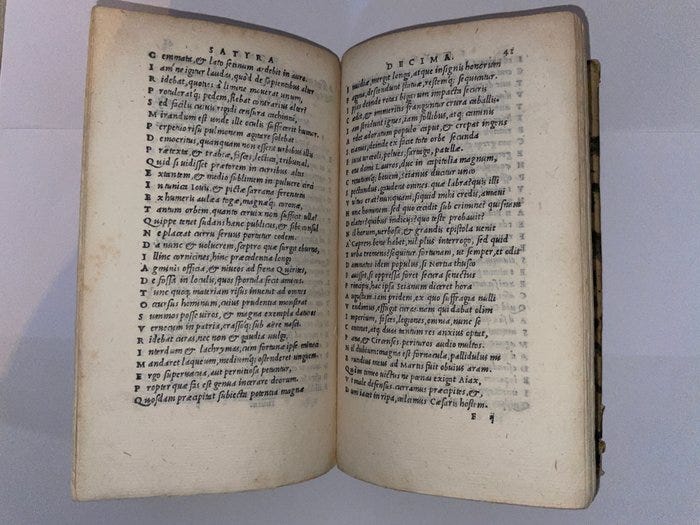 SATYRA
G emmata, & lato setinum ardebit in auro.
I am ne igitur laudas, quòd de sapientibus alter
R idebat, quoties à limine mouerat unum,
P rotuleratq; pedem, flebat contrarius alter?
S ed facilis cuiuis rigidi censura cachinni,
M irandum est unde ille oculis suffecerit humor.
P erpetuo risu pulmonem agitare solebat
D emocritus, quanquam non essent urbibus illis
P rætexta, & trabeæ, fasces, lectica, tribunal.
Q uid si uidisset prætorem in curribus altis
E xtantem, & medio sublimem in puluere circi
I n tunica Iouis, & pictæ sarrana ferentem
E x humeris aulæa togæ, magnæq; coronæ,
T antum orbem, quanto ceruix non sufficit ulla?
Q uippe tenet sudans hanc publicus, & sibi consul
N e placeat curru seruus portatur eodem.
D a nunc & uolucrem, sceptro quæ surgit eburno,
I llinc cornicines, hinc præcedentia longi
A gminis officia, & niueos ad frena Quirites,
D efossa in loculis, quos sportula fecit amicos.
T unc quoq; materiam risus inuenit ad omnes
O ccursus hominum, cuius prudentia monstrat
S ummos posse uiros, & magna exempla daturos
V eruecum in patria, crassoq; sub aëre nasci.
R idebat curas, nec non & gaudia uulgi,
I nterdum & lachrymas, cum fortunæ ipse minaci
M andaret laqueum, mediumq; ostenderet unguem.
E rgo superuacua, aut perniciosa petuntur,
P ropter quæ fas est genua incerare deorum.
Q uosdam præcipitat subiecta potentia magnæ
DECIMA. 41
I nuidiæ, mergit longa, atque insignis honorum
P agina, descendunt statuæ, restemq; sequuntur.
I psas deinde rotas bigarum impacta securis
C ædit, & immeritis franguntur crura caballis.
I am strident ignes, iam follibus, atq; caminis
A rdet adoratum populo caput, & crepat ingens
S eianus, deinde ex facie toto orbe secunda
F iunt urceoli, pelues, sartago, patellæ.
P one domi Lauros, duc in capitolia magnum,
C retatumq; bouem, seianus ducitur unco
S pectandus, gaudent omnes quæ labra? quis illi
V ultus erat? nunquam, si quid mihi credis, amaui
H unc hominem. sed quo cecidit sub crimine? quisnam
D elator? quibus indicijs? quo teste probauit?
N il horum, uerbosa, & grandis epistola uenit
A Capreis bene habet, nil plus interrogo, sed quid
T urba tremens? sequitur fortunam, ut semper, et odit
D amnatos idem populus, si Nortia thusco
F auisset, si oppressa foret secura senectus
P rincipis, hac ipsa Seianum diceret hora
A ugustum iam pridem, ex quo suffragia nulli
V endimus, effugit curas: nam qui dabat olim
I mperium, fasces, legiones, omnia, nunc se
C ontinet, atq; duas tantum res anxius optat,
P anem, & Circenses. perituros audio multos.
N il dubium: magna est fornacula, pallidulus mi
B rutidius meus ad Martis fuit obuius aram.
Q uàm timeo uictus ne pœnas exigat Aiax,
V t male defensus. curramus præcipites, &,
D um iacet in ripa, calcemus Cæsaris hostem.
F ij